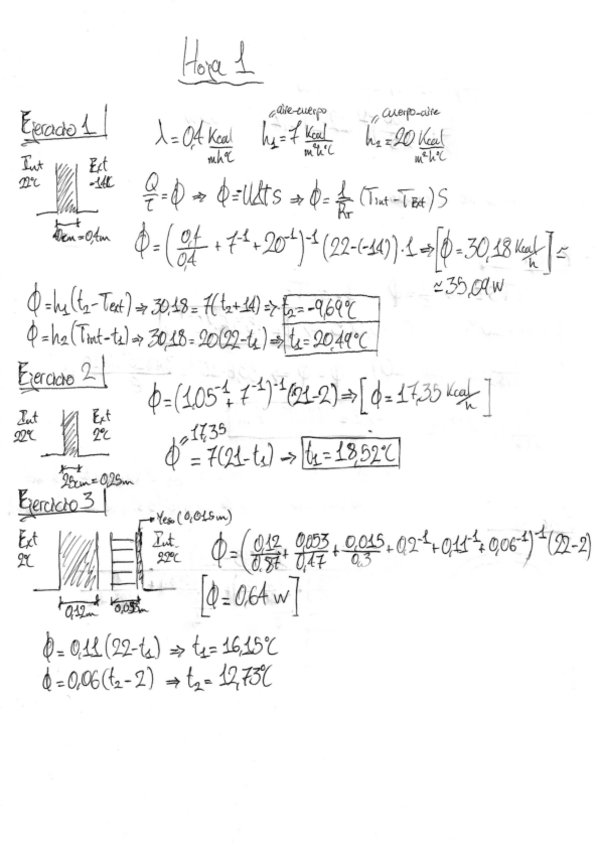 Hora 1
Ejercicio 1
λ = 0,4 Kcal/mh°C   h₁ = 7 Kcal/m²h°C   h₂ = 20 Kcal/m²h°C
"aire-cuerpo   "cuerpo-aire
Int 22°C   Ext -14°C
10cm = 0,1m
Q/τ = Φ ⇒ Φ = UΔtS ⇒ Φ = 1/Rт (Tint - TExt) S
Φ = (0,1/0,4 + 7⁻¹ + 20⁻¹)⁻¹ (22-(-14))·1 ⇒ [Φ = 30,18 Kcal/h] ≃
≃ 35,09 W
Φ = h₁(t₂ - Text) ⇒ 30,18 = 7(t₂+14) ⇒ t₂ = -9,69°C
Φ = h₂(Tint - t₁) ⇒ 30,18 = 20(22-t₁) ⇒ t₁ = 20,49°C
Ejercicio 2
Int 22°C   Ext 2°C
25cm = 0,25m
Φ = (1,05⁻¹ + 7⁻¹)⁻¹ (21-2) ⇒ [Φ = 17,35 Kcal/h]
" 17,35
Φ = 7(21-t₁) ⇒ t₁ = 18,52°C
Ejercicio 3
Yeso (0,015m)
Ext 2°C   Int 22°C
0,12m
Φ = (0,12/0,87 + 0,053/0,47 + 0,015/0,3 + 0,2⁻¹ + 0,11⁻¹ + 0,06⁻¹)⁻¹ (22-2)
[Φ = 0,64 W]
Φ = 0,11(22-t₁) ⇒ t₁ = 16,15°C
Φ = 0,06(t₂-2) ⇒ t₂ = 12,73°C